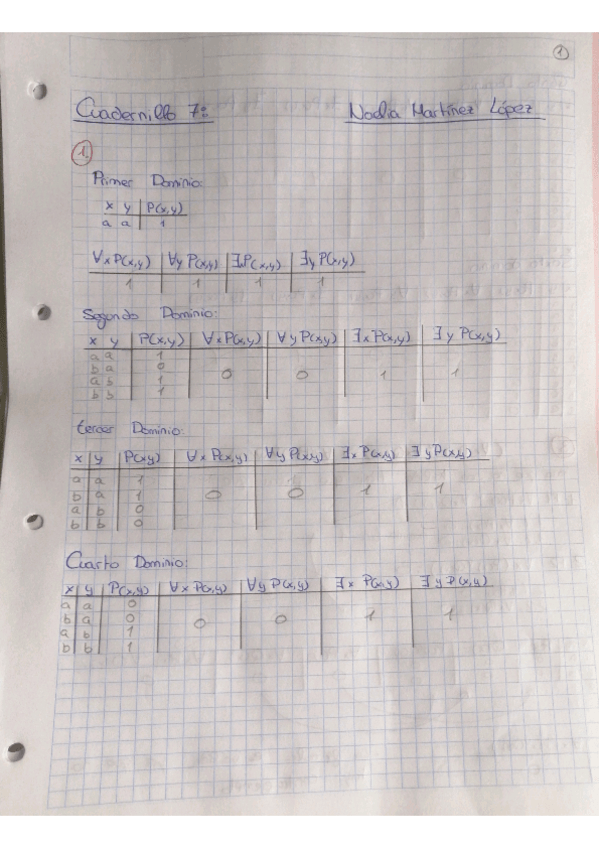 1
Cuadernillo 7: Nadia Martínez López
1.
Primer Dominio:
x y P(x,y)
a a 1
∀x P(x,y) ∀y P(x,y) ∃x P(x,y) ∃y P(x,y)
1 1 1 1
Segundo Dominio:
x y P(x,y) ∀x P(x,y) ∀y P(x,y) ∃x P(x,y) ∃y P(x,y)
a a 1
b a 0 0 0 1 1
a b 1
b b 1
tercer Dominio:
x y P(x,y) ∀x P(x,y) ∀y P(x,y) ∃x P(x,y) ∃y P(x,y)
a a 1
b a 1 0 0 1 1
a b 0
b b 0
Cuarto Dominio:
x y P(x,y) ∀x P(x,y) ∀y P(x,y) ∃x P(x,y) ∃y P(x,y)
a a 0
b a 0 0 0 1 1
a b 1
b b 1